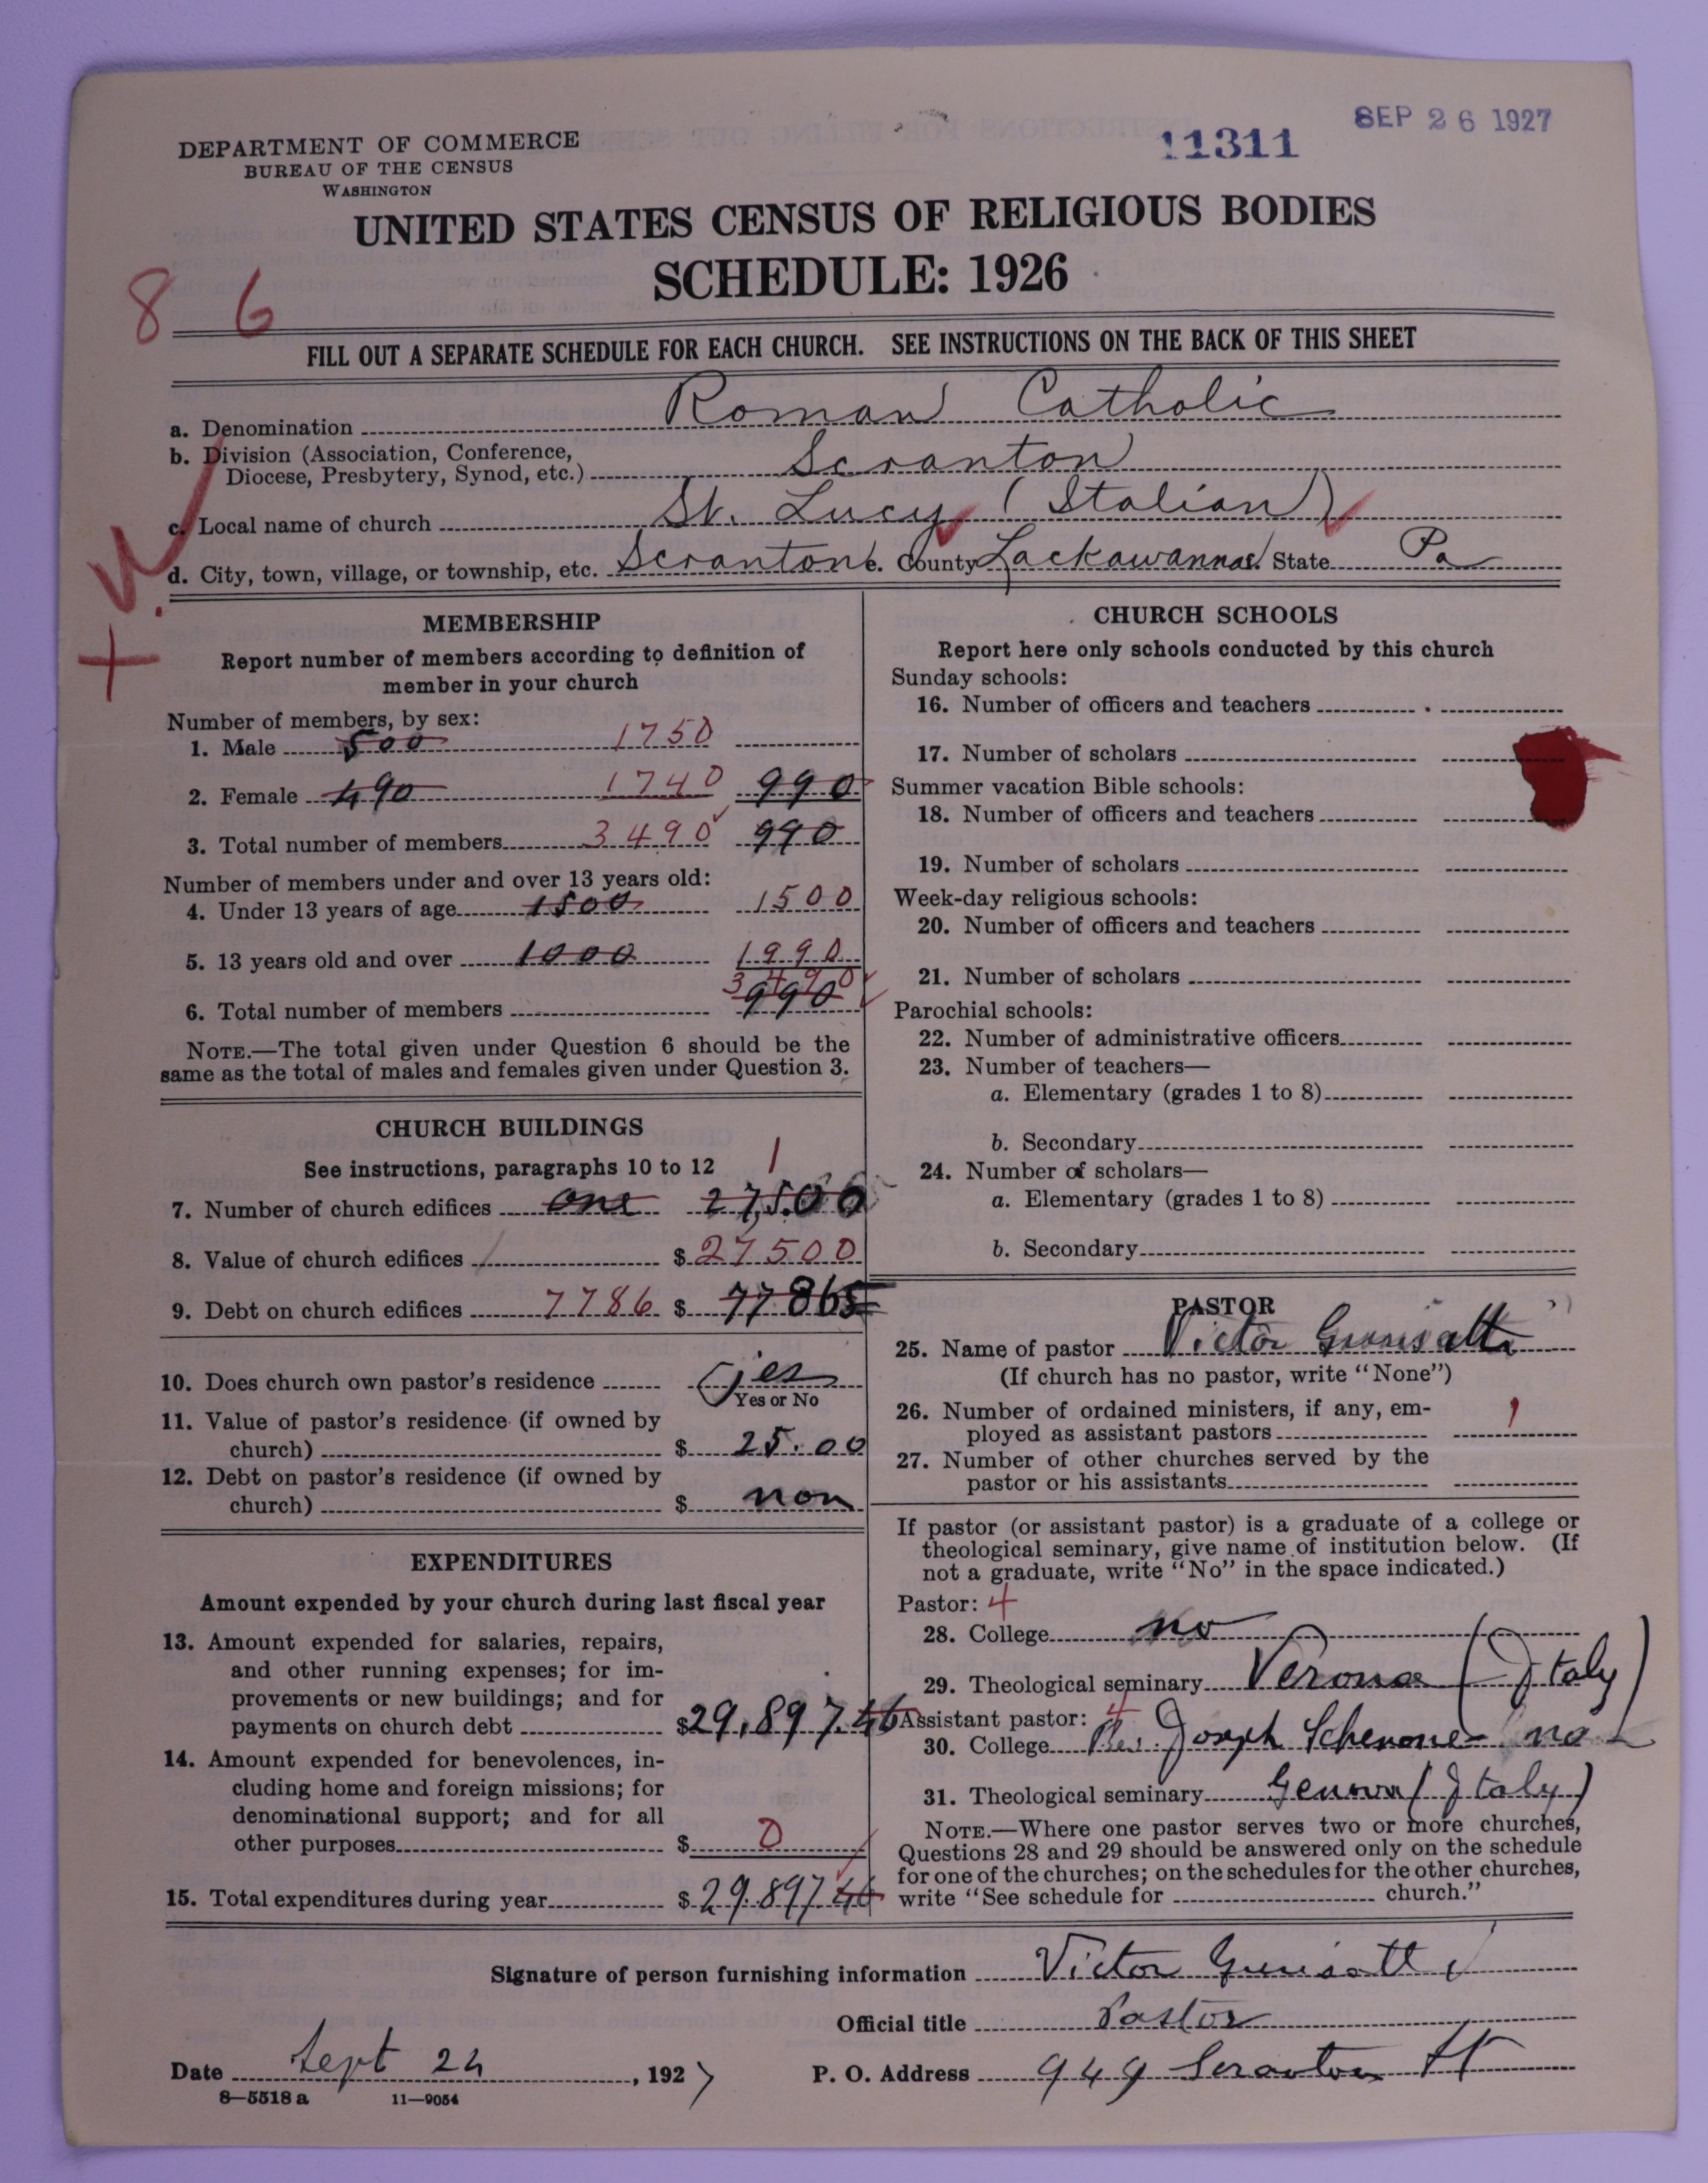 SEP 26 1927
11311
DEPARTMENT OF COMMERCE
BUREAU OF THE CENSUS
WASHINGTON
UNITED STATES CENSUS OF RELIGIOUS BODIES
SCHEDULE: 1926
8 6
FILL OUT A SEPARATE SCHEDULE FOR EACH CHURCH. SEE INSTRUCTIONS ON THE BACK OF THIS SHEET
a. Denomination Roman Catholic
b. Division (Association, Conference,
Diocese, Presbytery, Synod, etc.) Scranton
c. Local name of church St. Lucy (Italian)
d. City, town, village, or township, etc. Scranton e. County Lackawanna d. State Pa
MEMBERSHIP
Report number of members according to definition of
member in your church
Number of members, by sex:
1. Male 500 1750
2. Female 490 1740 990
3. Total number of members 3490 990
Number of members under and over 13 years old:
4. Under 13 years of age 1500 1500
5. 13 years old and over 1000 1990
3490
6. Total number of members 990
NOTE.—The total given under Question 6 should be the
same as the total of males and females given under Question 3.
CHURCH BUILDINGS
See instructions, paragraphs 10 to 12 1
7. Number of church edifices one 27,500
8. Value of church edifices $ 27500
9. Debt on church edifices 7786 $ 77865
10. Does church own pastor's residence yes
Yes or No
11. Value of pastor's residence (if owned by
church) $ 25.00
12. Debt on pastor's residence (if owned by
church) $ non
EXPENDITURES
Amount expended by your church during last fiscal year
13. Amount expended for salaries, repairs,
and other running expenses; for im-
provements or new buildings; and for
payments on church debt $29,897.46
14. Amount expended for benevolences, in-
cluding home and foreign missions; for
denominational support; and for all
other purposes $ 0
15. Total expenditures during year $ 29.897.46
CHURCH SCHOOLS
Report here only schools conducted by this church
Sunday schools:
16. Number of officers and teachers
17. Number of scholars
Summer vacation Bible schools:
18. Number of officers and teachers
19. Number of scholars
Week-day religious schools:
20. Number of officers and teachers
21. Number of scholars
Parochial schools:
22. Number of administrative officers
23. Number of teachers—
a. Elementary (grades 1 to 8)
b. Secondary
24. Number of scholars—
a. Elementary (grades 1 to 8)
b. Secondary
PASTOR
25. Name of pastor Victor
(If church has no pastor, write "None")
26. Number of ordained ministers, if any, em-
ployed as assistant pastors 1
27. Number of other churches served by the
pastor or his assistants
If pastor (or assistant pastor) is a graduate of a college or
theological seminary, give name of institution below. (If
not a graduate, write "No" in the space indicated.)
Pastor: 4
28. College no
29. Theological seminary Verona (Italy)
Assistant pastor: 4
30. College Rev. Joseph Schenone - no
31. Theological seminary Genova (Italy)
NOTE.—Where one pastor serves two or more churches,
Questions 28 and 29 should be answered only on the schedule
for one of the churches; on the schedules for the other churches,
write "See schedule for church."
Signature of person furnishing information Victor
Official title Pastor
Date Sept 24, 1927 P. O. Address 949 Scranton St
8—5518 a 11—9054